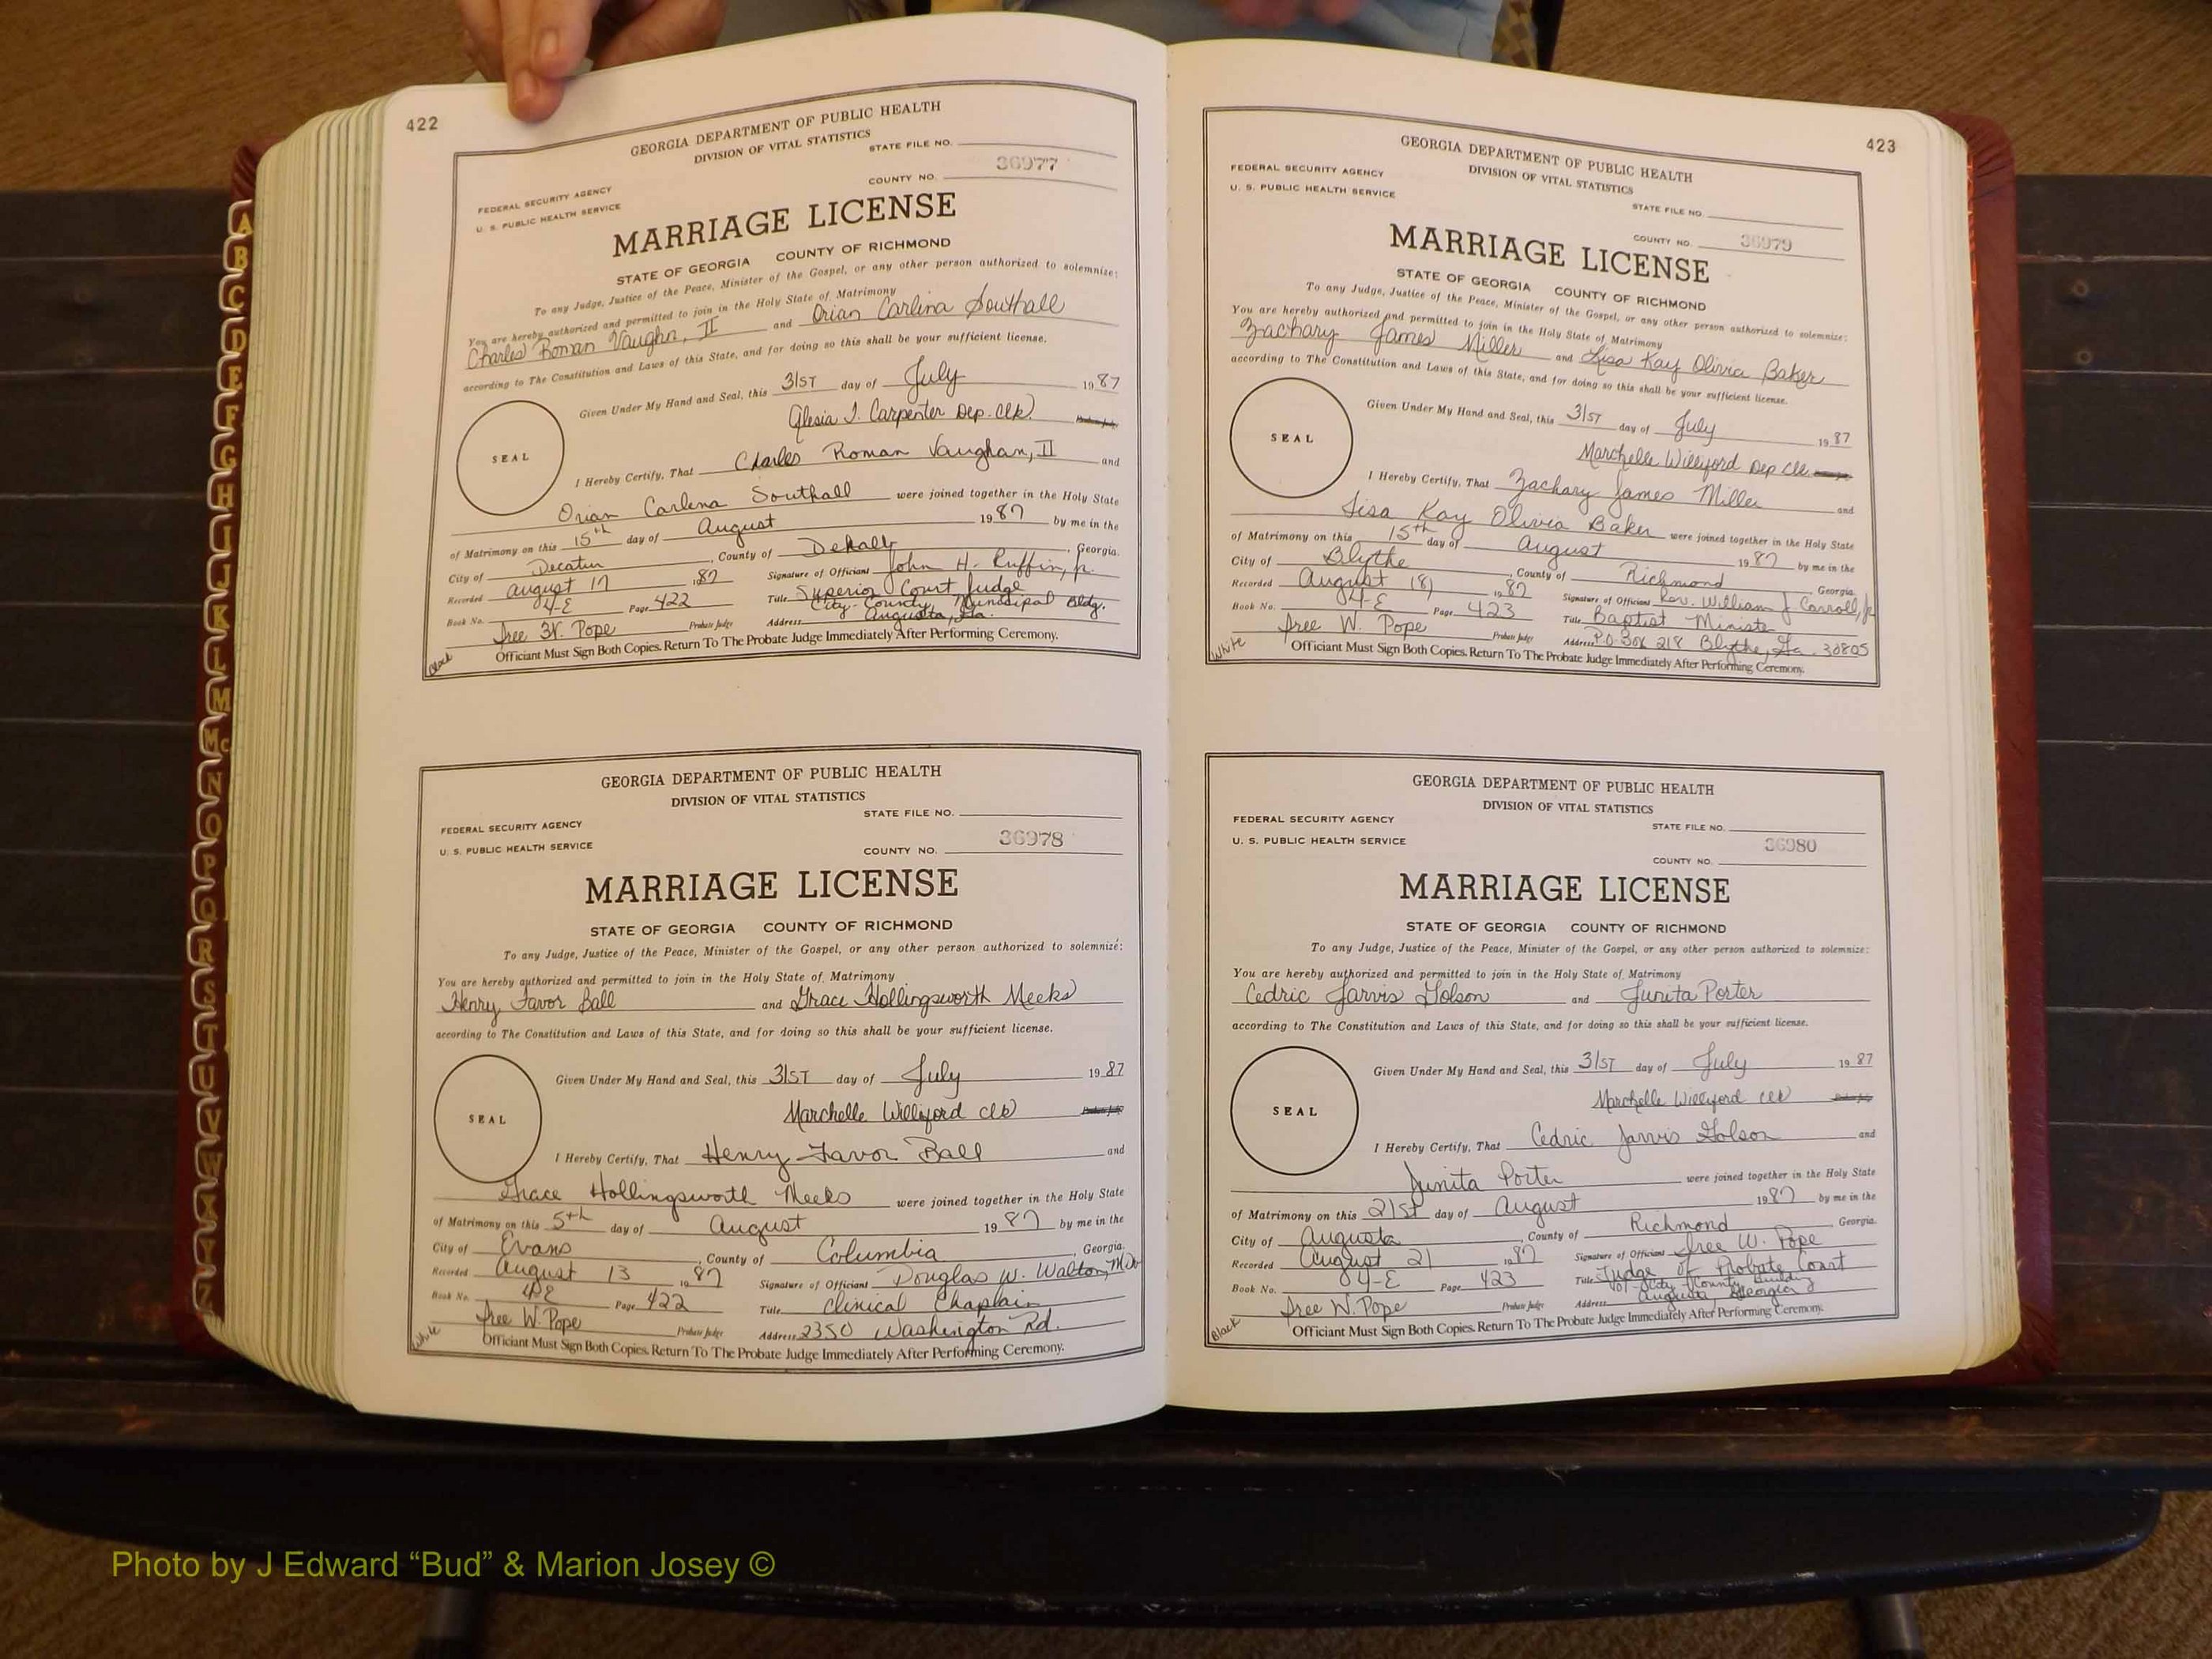 422
GEORGIA DEPARTMENT OF PUBLIC HEALTH
DIVISION OF VITAL STATISTICS
STATE FILE NO.
36977
COUNTY NO.
FEDERAL SECURITY AGENCY
U. S. PUBLIC HEALTH SERVICE
MARRIAGE LICENSE
STATE OF GEORGIA COUNTY OF RICHMOND
To any Judge, Justice of the Peace, Minister of the Gospel, or any other person authorized to solemnize:
You are hereby authorized and permitted to join in the Holy State of Matrimony
Charles Roman Vaughn, II and Orian Carlina Southall
according to The Constitution and Laws of this State, and for doing so this shall be your sufficient license.
Given Under My Hand and Seal, this 31ST day of July 1987
Alesia J. Carpenter Dep. Clk
SEAL
I Hereby Certify, That Charles Roman Vaughan, II and
Orian Carlena Southall were joined together in the Holy State
of Matrimony on this 15th day of August 1987 by me in the
City of Decatur, County of Dekalb, Georgia.
Recorded August 17 1987 Signature of Officiant John H. Ruffin, jr.
Book No. 4-E Page 422 Title Superior Court Judge
Address City-County Municipal Bldg.
Augusta, Ga.
Probate Judge
Officiant Must Sign Both Copies. Return To The Probate Judge Immediately After Performing Ceremony.
Black
GEORGIA DEPARTMENT OF PUBLIC HEALTH
DIVISION OF VITAL STATISTICS
STATE FILE NO.
FEDERAL SECURITY AGENCY
36978
U. S. PUBLIC HEALTH SERVICE
COUNTY NO.
MARRIAGE LICENSE
STATE OF GEORGIA COUNTY OF RICHMOND
To any Judge, Justice of the Peace, Minister of the Gospel, or any other person authorized to solemnize:
You are hereby authorized and permitted to join in the Holy State of Matrimony
Henry Favor Ball and Grace Hollingsworth Meeks
according to The Constitution and Laws of this State, and for doing so this shall be your sufficient license.
Given Under My Hand and Seal, this 31ST day of July 1987
Marchelle Williford Clk
SEAL
I Hereby Certify, That Henry Favor Ball and
Grace Hollingsworth Meeks were joined together in the Holy State
of Matrimony on this 5th day of August 1987 by me in the
City of Evans, County of Columbia, Georgia.
Recorded August 13 1987 Signature of Officiant Douglas W. Walton, MDiv
Book No. 4-E Page 422 Title Clinical Chaplain
W. Pope Probate Judge Address 2350 Washington Rd.
White
Officiant Must Sign Both Copies. Return To The Probate Judge Immediately After Performing Ceremony.
423
GEORGIA DEPARTMENT OF PUBLIC HEALTH
DIVISION OF VITAL STATISTICS
FEDERAL SECURITY AGENCY
U. S. PUBLIC HEALTH SERVICE
STATE FILE NO.
COUNTY NO. 36979
MARRIAGE LICENSE
STATE OF GEORGIA COUNTY OF RICHMOND
To any Judge, Justice of the Peace, Minister of the Gospel, or any other person authorized to solemnize:
You are hereby authorized and permitted to join in the Holy State of Matrimony
Zachary James Miller and Lisa Kay Olivia Baker
according to The Constitution and Laws of this State, and for doing so this shall be your sufficient license.
Given Under My Hand and Seal, this 31ST day of July 1987
Marchelle Williford Dep Clk
SEAL
I Hereby Certify, That Zachary James Miller and
Lisa Kay Olivia Baker were joined together in the Holy State
of Matrimony on this 15th day of August 1987 by me in the
City of Blythe, County of Richmond Georgia.
Recorded August 18 1987 Signature of Officiant Rev. William J Carroll, jr
Book No. 84-E Page 423 Title Baptist Minister
W. Pope Probate Judge Address P.O. Box 218 Blythe, Ga. 30805
White
Officiant Must Sign Both Copies. Return To The Probate Judge Immediately After Performing Ceremony.
GEORGIA DEPARTMENT OF PUBLIC HEALTH
DIVISION OF VITAL STATISTICS
FEDERAL SECURITY AGENCY
STATE FILE NO.
U. S. PUBLIC HEALTH SERVICE
36980
COUNTY NO.
MARRIAGE LICENSE
STATE OF GEORGIA COUNTY OF RICHMOND
To any Judge, Justice of the Peace, Minister of the Gospel, or any other person authorized to solemnize:
You are hereby authorized and permitted to join in the Holy State of Matrimony
Cedric Jarvis Golson and Junita Porter
according to The Constitution and Laws of this State, and for doing so this shall be your sufficient license.
Given Under My Hand and Seal, this 31ST day of July 1987
Marchelle Williford Clk
SEAL
I Hereby Certify, That Cedric Jarvis Golson and
Junita Porter were joined together in the Holy State
of Matrimony on this 21st day of August 1987 by me in the
City of Augusta, County of Richmond, Georgia.
Recorded August 21 1987 Signature of Officiant W. Pope
Book No. 84-E Page 423 Title Judge of Probate Court
W. Pope Probate Judge Address City-County Building
Augusta, Georgia
Black
Officiant Must Sign Both Copies. Return To The Probate Judge Immediately After Performing Ceremony.
A
B
C
D
E
F
G
H
I
J
K
L
M
Mc
N
O
P
Q
R
S
T
U
V
W
X
Y
Z
Photo by J Edward “Bud” & Marion Josey ©